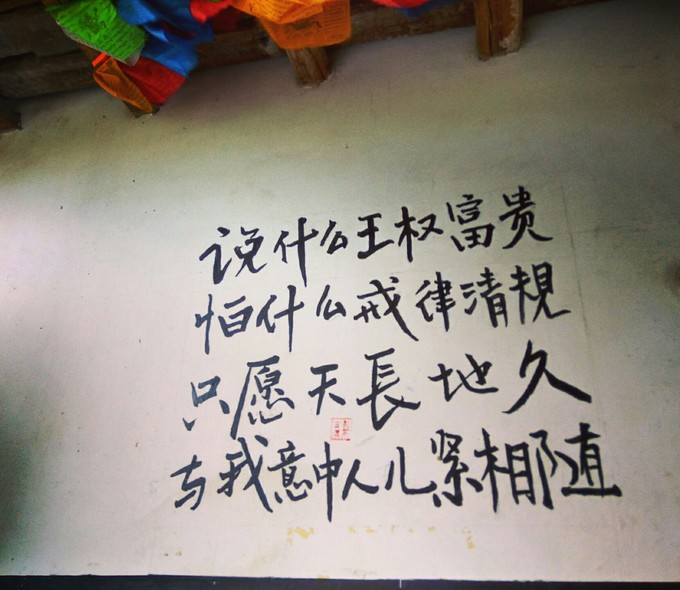 说什么王权富贵
怕什么戒律清规
只愿天長地久
与我意中人儿紧相随